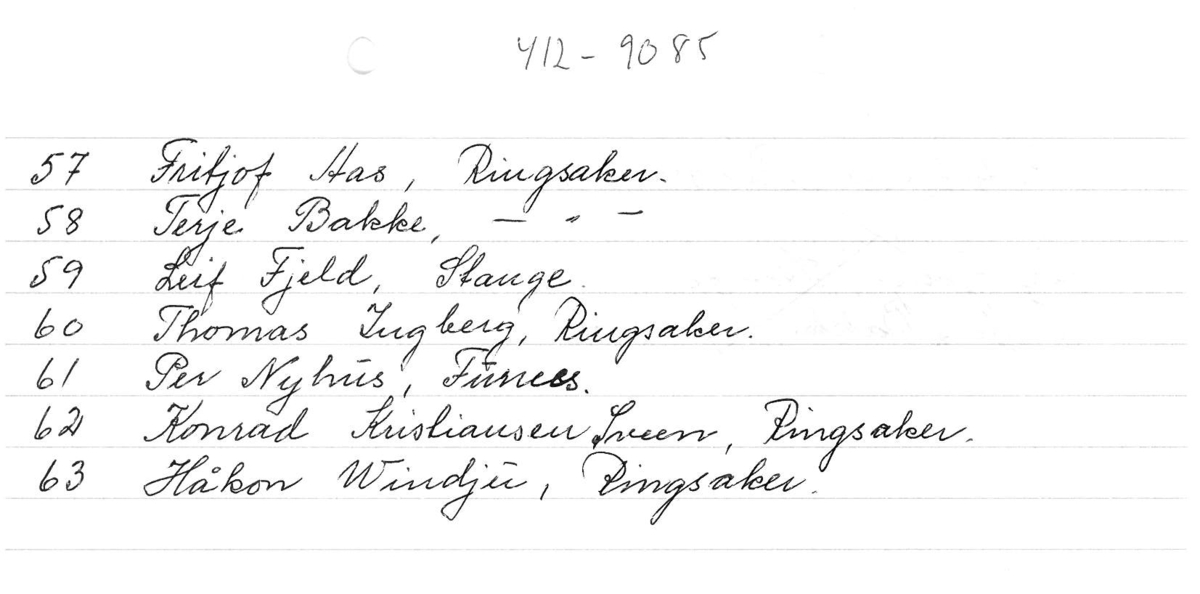 412-9085
57 Fritjof Has, Ringsaker.
58 Terje Bakke, — „ —
59 Leif Fjeld, Stange.
60 Thomas Ingberg, Ringsaker.
61 Per Nyhus, Furness.
62 Konrad Kristiansen Sveen, Ringsaker.
63 Håkon Windju, Ringsaker.